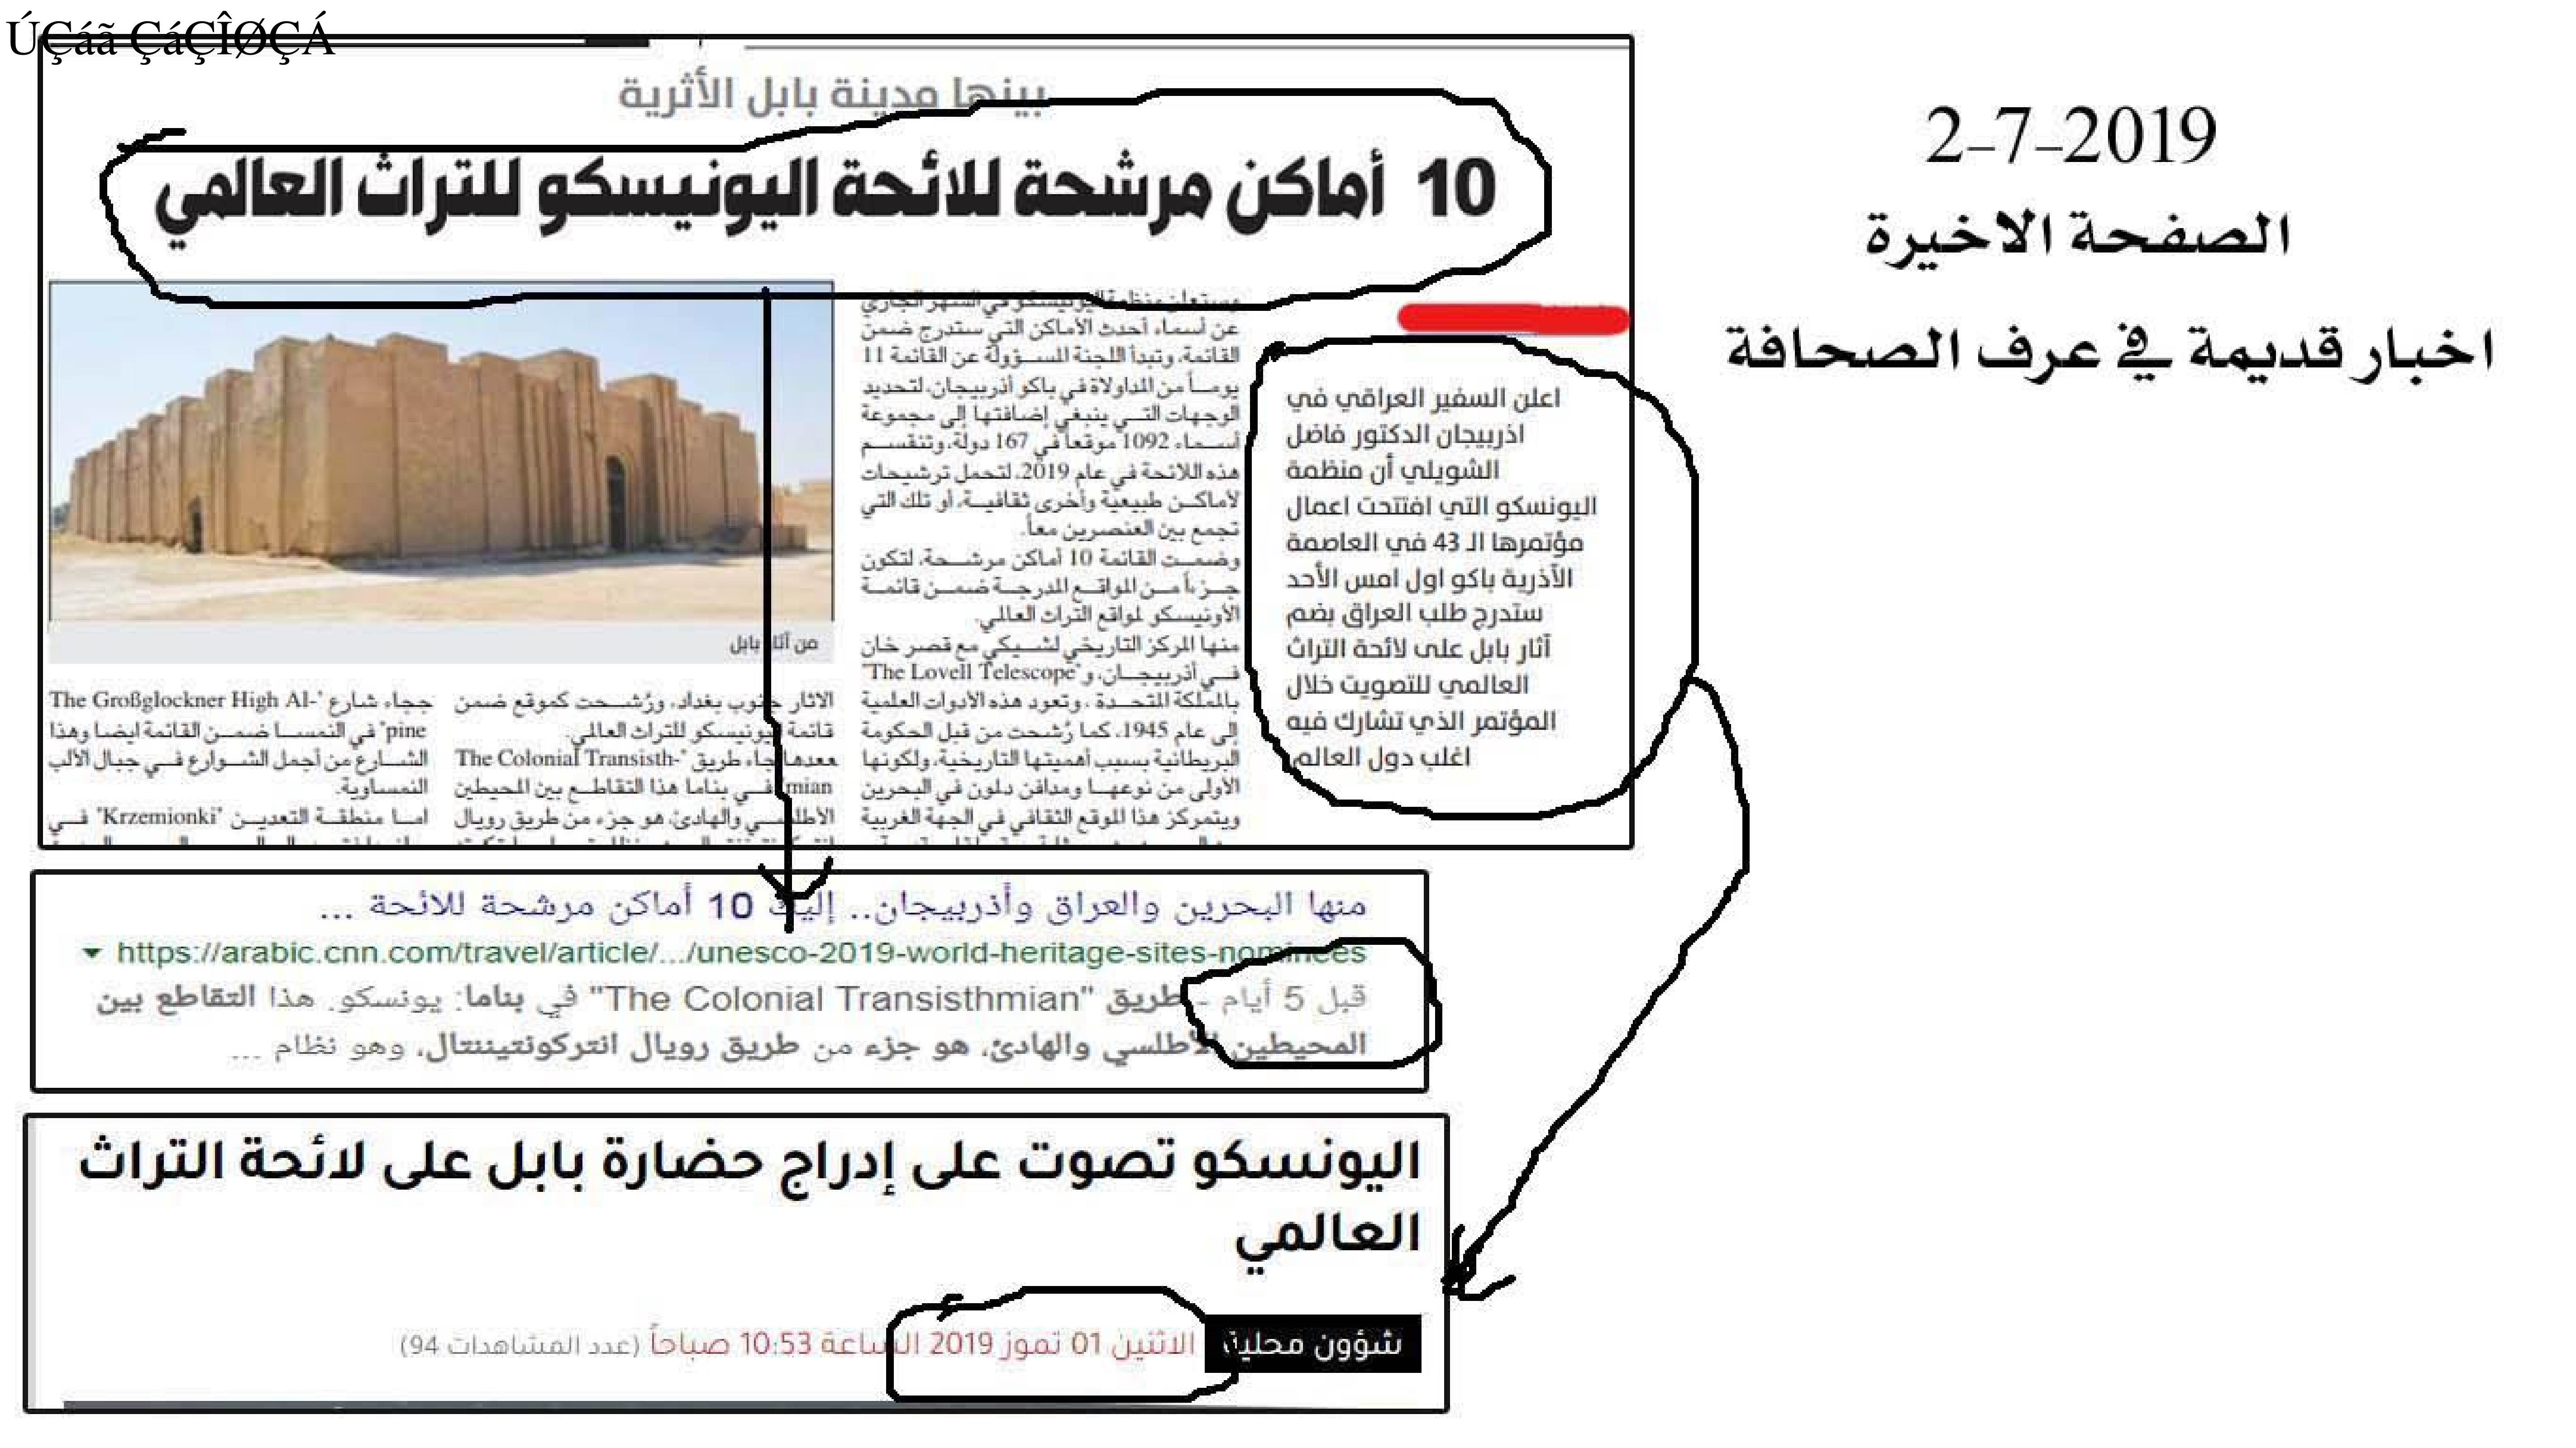 ÚÇáã ÇáÇÎØÇÁ
2-7-2019
الصفحة الاخيرة
اخبار قديمة في عرف الصحافة
بينها مدينة بابل الأثرية
10 أماكن مرشحة للائحة اليونيسكو للتراث العالمي
اعلن السفير العراقي في
اذربيجان الدكتور فاضل
الشويلي أن منظمة
اليونسكو التي افتتحت اعمال
مؤتمرها الـ 43 في العاصمة
الآذرية باكو اول امس الأحد
ستدرج طلب العراق بضم
آثار بابل على لائحة التراث
العالمي للتصويت خلال
المؤتمر الذي تشارك فيه
اغلب دول العالم.
وستعلن منظمة اليونيسكو في الشهر الجاري
عن أسماء أحدث الأماكن التي ستدرج ضمن
القائمة، وتبدأ اللجنة المسؤولة عن القائمة 11
يوماً من المداولاة في باكو أذربيجان، لتحديد
الوجهات التي ينبغي إضافتها إلى مجموعة
أسماء 1092 موقعاً في 167 دولة، وتنقسم
هذه اللائحة في عام 2019، لتحمل ترشيحات
لأماكن طبيعية وأخرى ثقافية، أو تلك التي
تجمع بين العنصرين معاً.
وضمت القائمة 10 أماكن مرشحة، لتكون
جزءاً من المواقع المدرجة ضمن قائمة
الأونيسكو لمواقع التراث العالمي.
منها المركز التاريخي لشيكي مع قصر خان
في أذربيجان، و"The Lovell Telescope"
بالمملكة المتحدة، وتعود هذه الأدوات العلمية
إلى عام 1945، كما رُشحت من قبل الحكومة
البريطانية بسبب أهميتها التاريخية، ولكونها
الأولى من نوعها ومدافن دلون في البحرين
ويتمركز هذا الموقع الثقافي في الجهة الغربية
من آثار بابل
الاثار جنوب بغداد، ورُشحت كموقع ضمن
قائمة يونيسكو للتراث العالمي.
معدها جاء طريق "The Colonial Transisth-
mian" في بناما هذا التقاطع بين المحيطين
الأطلسي والهادئ، هو جزء من طريق رويال
ججاء شارع "The Großglockner High Al-
pine" في النمسا ضمن القائمة ايضا وهذا
الشارع من أجمل الشوارع في جبال الألب
النمساوية.
اما منطقة التعدين "Krzemionki" في
منها البحرين والعراق وأذربيجان.. إليك 10 أماكن مرشحة للائحة ...
https://arabic.cnn.com/travel/article/.../unesco-2019-world-heritage-sites-nominees
قبل 5 أيام - طريق "The Colonial Transisthmian" في بناما: يونسكو. هذا التقاطع بين
المحيطين الأطلسي والهادئ، هو جزء من طريق رويال انتركونتيننتال، وهو نظام ...
اليونسكو تصوت على إدراج حضارة بابل على لائحة التراث
العالمي
شؤون محلية الاثنين 01 تموز 2019 الساعة 10:53 صباحاً (عدد المشاهدات 94)